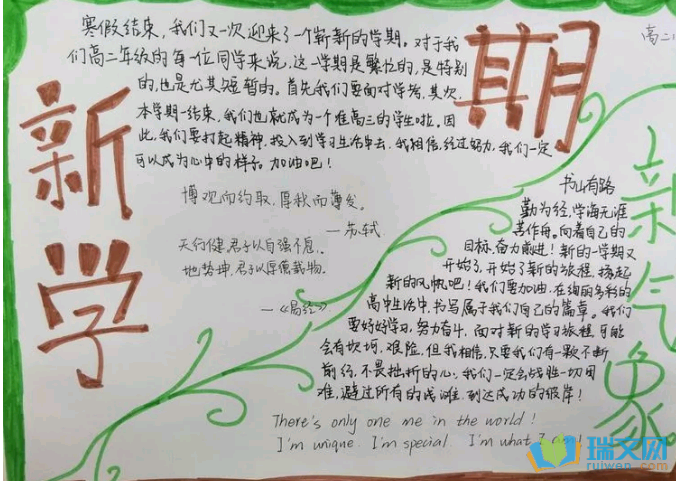 新学期
新气象
高二
寒假结束，我们又一次迎来了一个崭新的学期。对于我
们高二年级的每一位同学来说，这一学期是繁忙的，是特别
的，也是尤其短暂的。首先我们要面对学考，其次，
本学期一结束，我们也就成为一个准高三的学生啦。因
此，我们要打起精神，投入到学习生活中去，我相信，经过努力，我们一定
可以成为心中的样子。加油吧！
博观而约取，厚积而薄发。
—苏轼
天行健，君子以自强不息。
地势坤，君子以厚德载物。
—《易经》
书山有路
勤为径，学海无涯
苦作舟。向着自己的
目标，奋力前进！新的一学期又
开始了，开始了新的旅程，扬起
新的风帆吧！我们要加油，在绚丽多彩的
高中生活中，书写属于我们自己的篇章。我们
要好好学习，努力奋斗，面对新的学习旅程，可能
会有坎坷，艰险，但我相信，只要我们有一颗不断
前行，不畏挫折的心，我们一定会战胜一切困
难，避过所有的浅滩，到达成功的彼岸！
There's only one me in the world!
I'm unique. I'm special. I'm what I am!
瑞文网
ruiwen.com